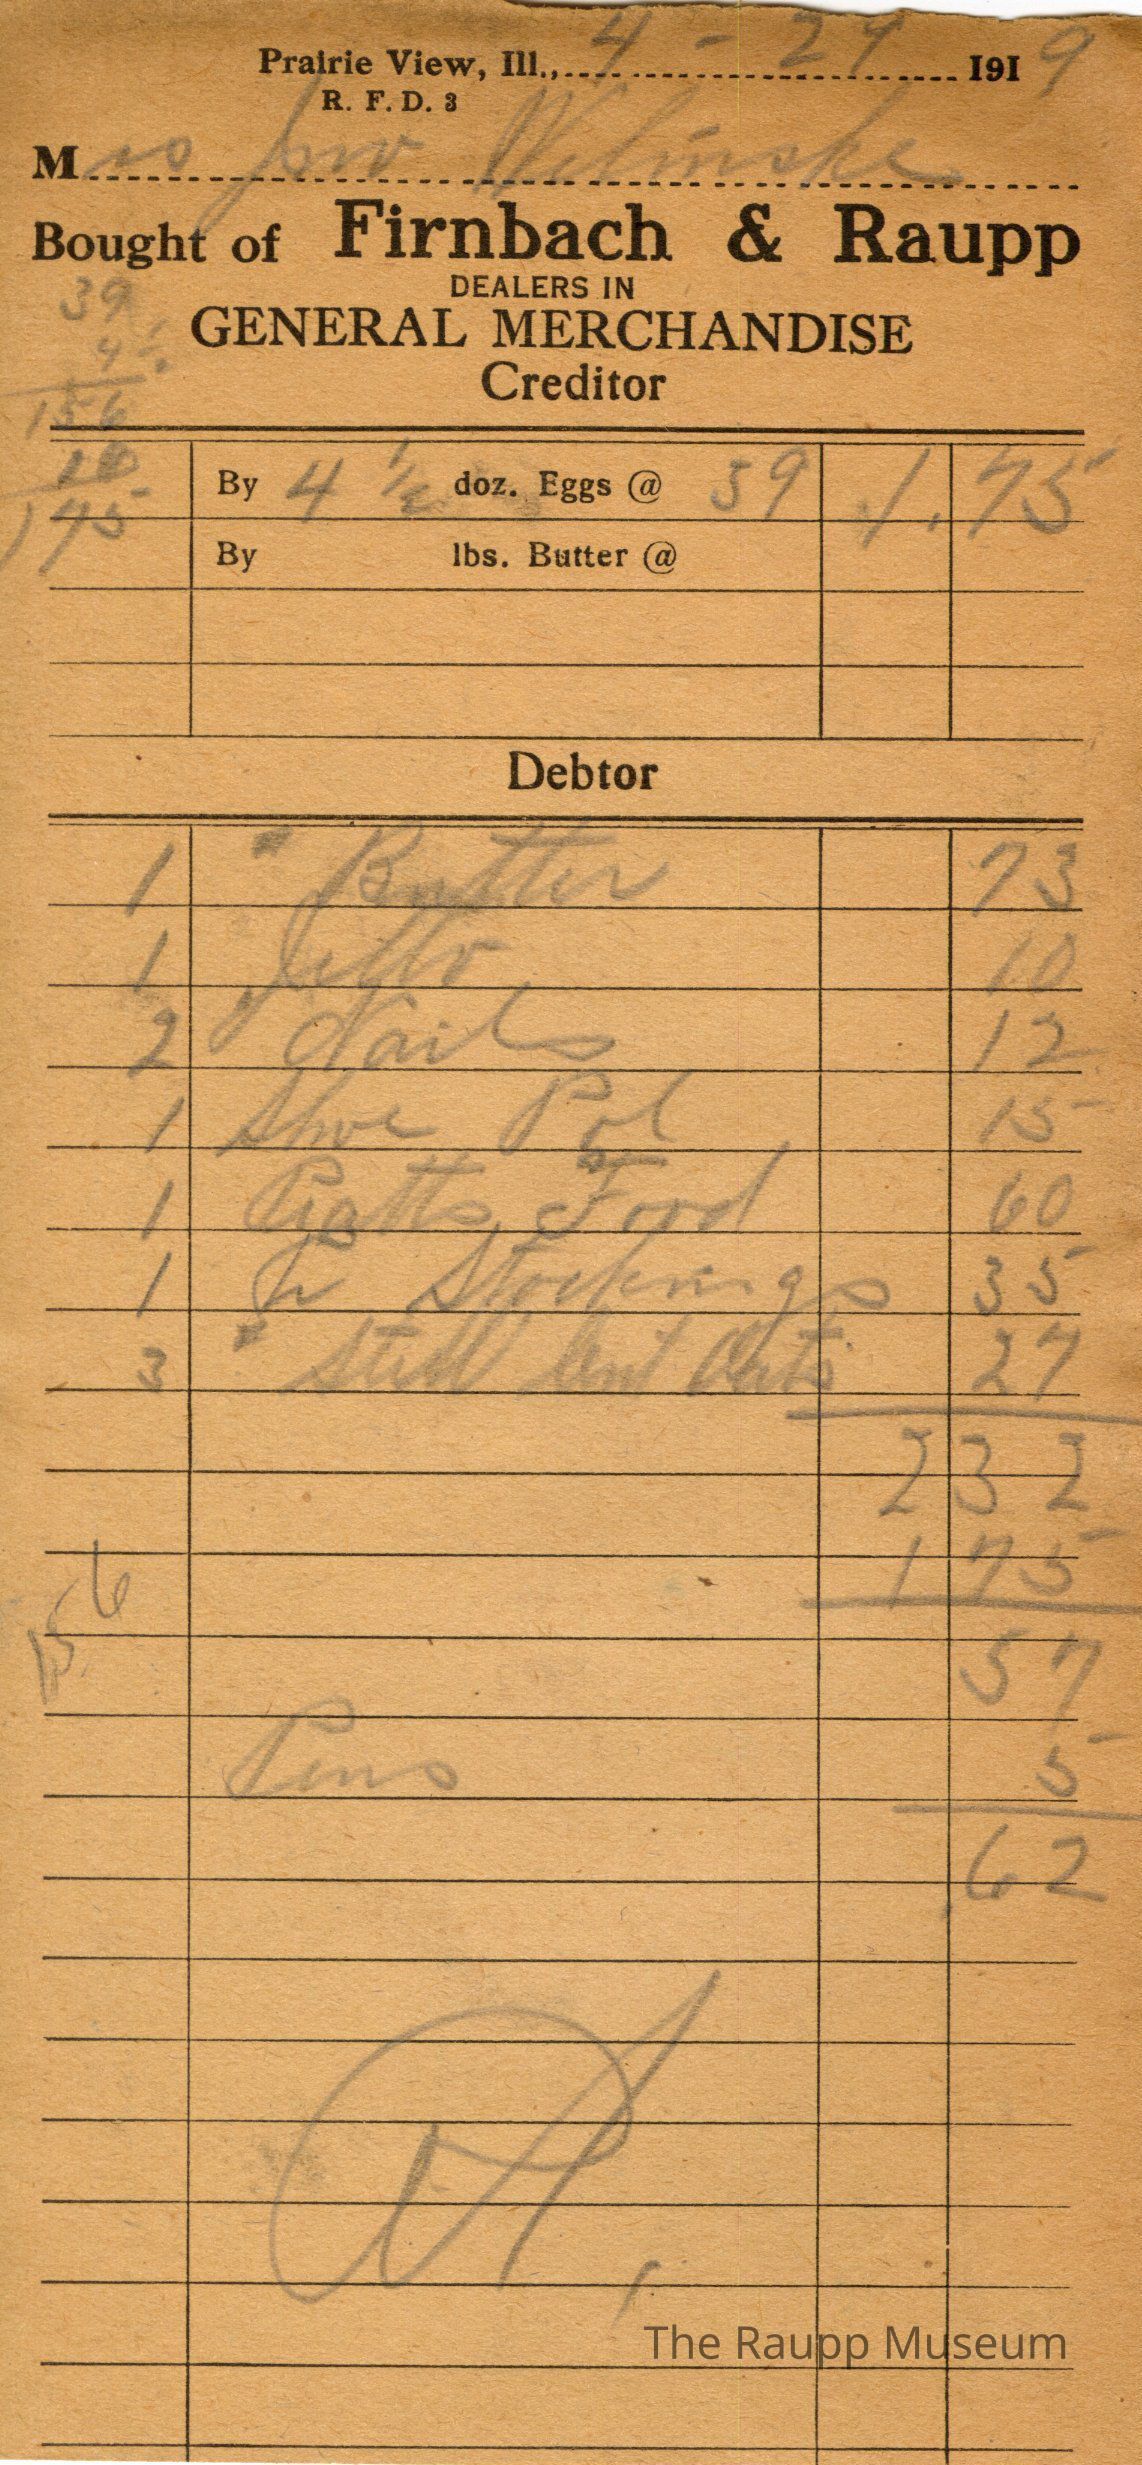 Prairie View, Ill., 4 - 29 1919
R. F. D. 3
Mrs Jno Welinske
Bought of Firnbach & Raupp
DEALERS IN
GENERAL MERCHANDISE
Creditor
39
4 1/2
156
19
175
By 4 1/2 doz. Eggs @ 39 1.75
By lbs. Butter @
Debtor
1 " Butter 73
1 Jello 10
2 Nails 12
1 Shoe Pol 15
1 Pratts Food 60
1 Pr Stockings 35
3 " Steel Cut Oats 27
232
175
6
15
57
Pens 5
.62
The Raupp Museum